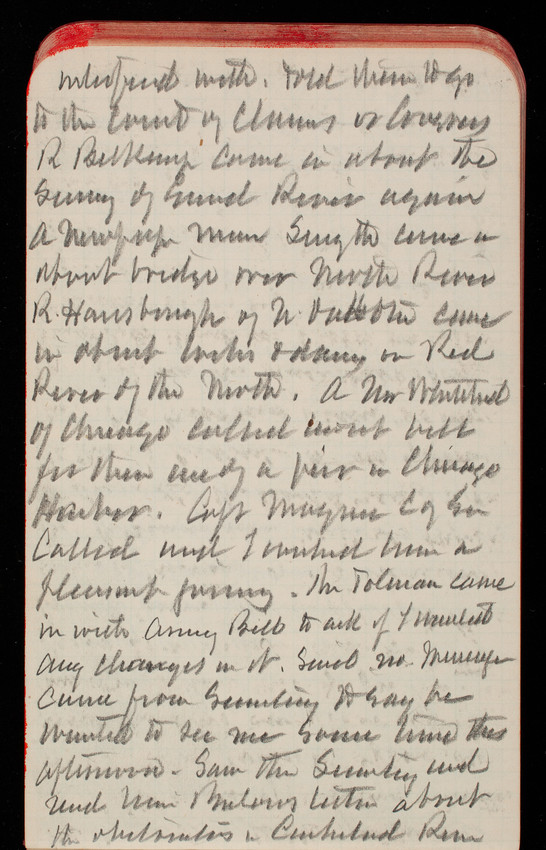 with. Told them to go
to the Court of Claims or Congress
R Belknap came in about the
Survey of Grand River again
A Newspap man Smyth came in
about bridge over North River
R. Hansbrough of N. Dakota came
in about locks & dams on Red
River of the North. A Mr Whitehead
of Chicago called about bill
for the use of a pier in Chicago
Harbor. Capt Maguire C of En
Called and I wished him a
pleasant journey. Mr Tolman came
in with Army Bill to ask if I wanted
any changes in it. Said no. Messenger
came from Secretary to say he
wanted to see me some time this
afternoon. Saw the Secretary and
read him letter about
the obstructions in Cumberland River